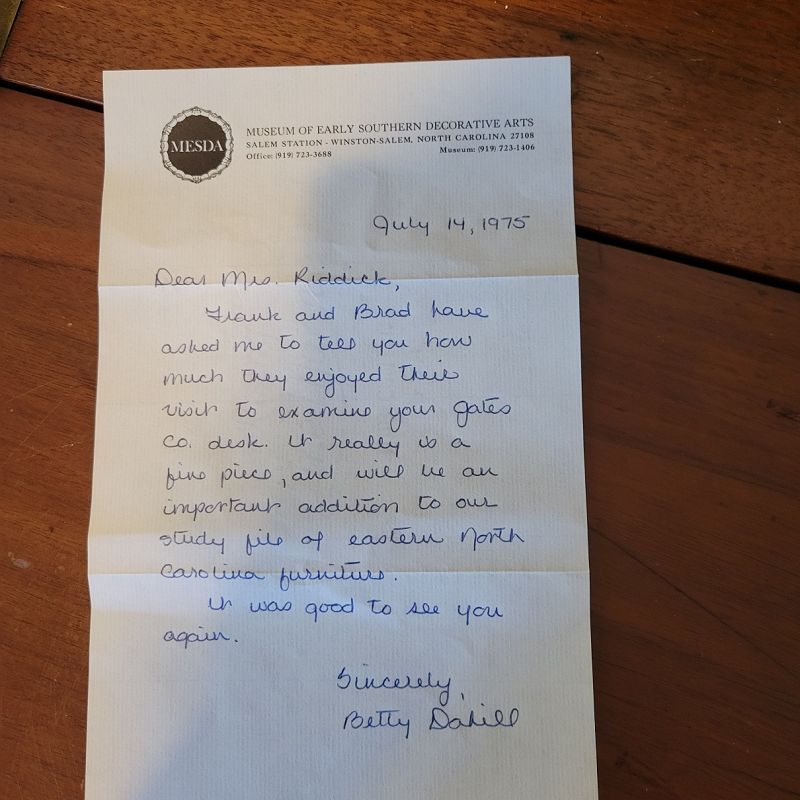 MESDA
MUSEUM OF EARLY SOUTHERN DECORATIVE ARTS
SALEM STATION - WINSTON-SALEM, NORTH CAROLINA 27108
Office: (919) 723-3688 Museum: (919) 723-1406
July 14, 1975
Dear Mrs. Riddick,
Frank and Brad have
asked me to tell you how
much they enjoyed their
visit to examine your Gates
Co. desk. It really is a
fine piece, and will be an
important addition to our
study file of eastern North
Carolina furniture.
It was good to see you
again.
Sincerely,
Betty Dahill